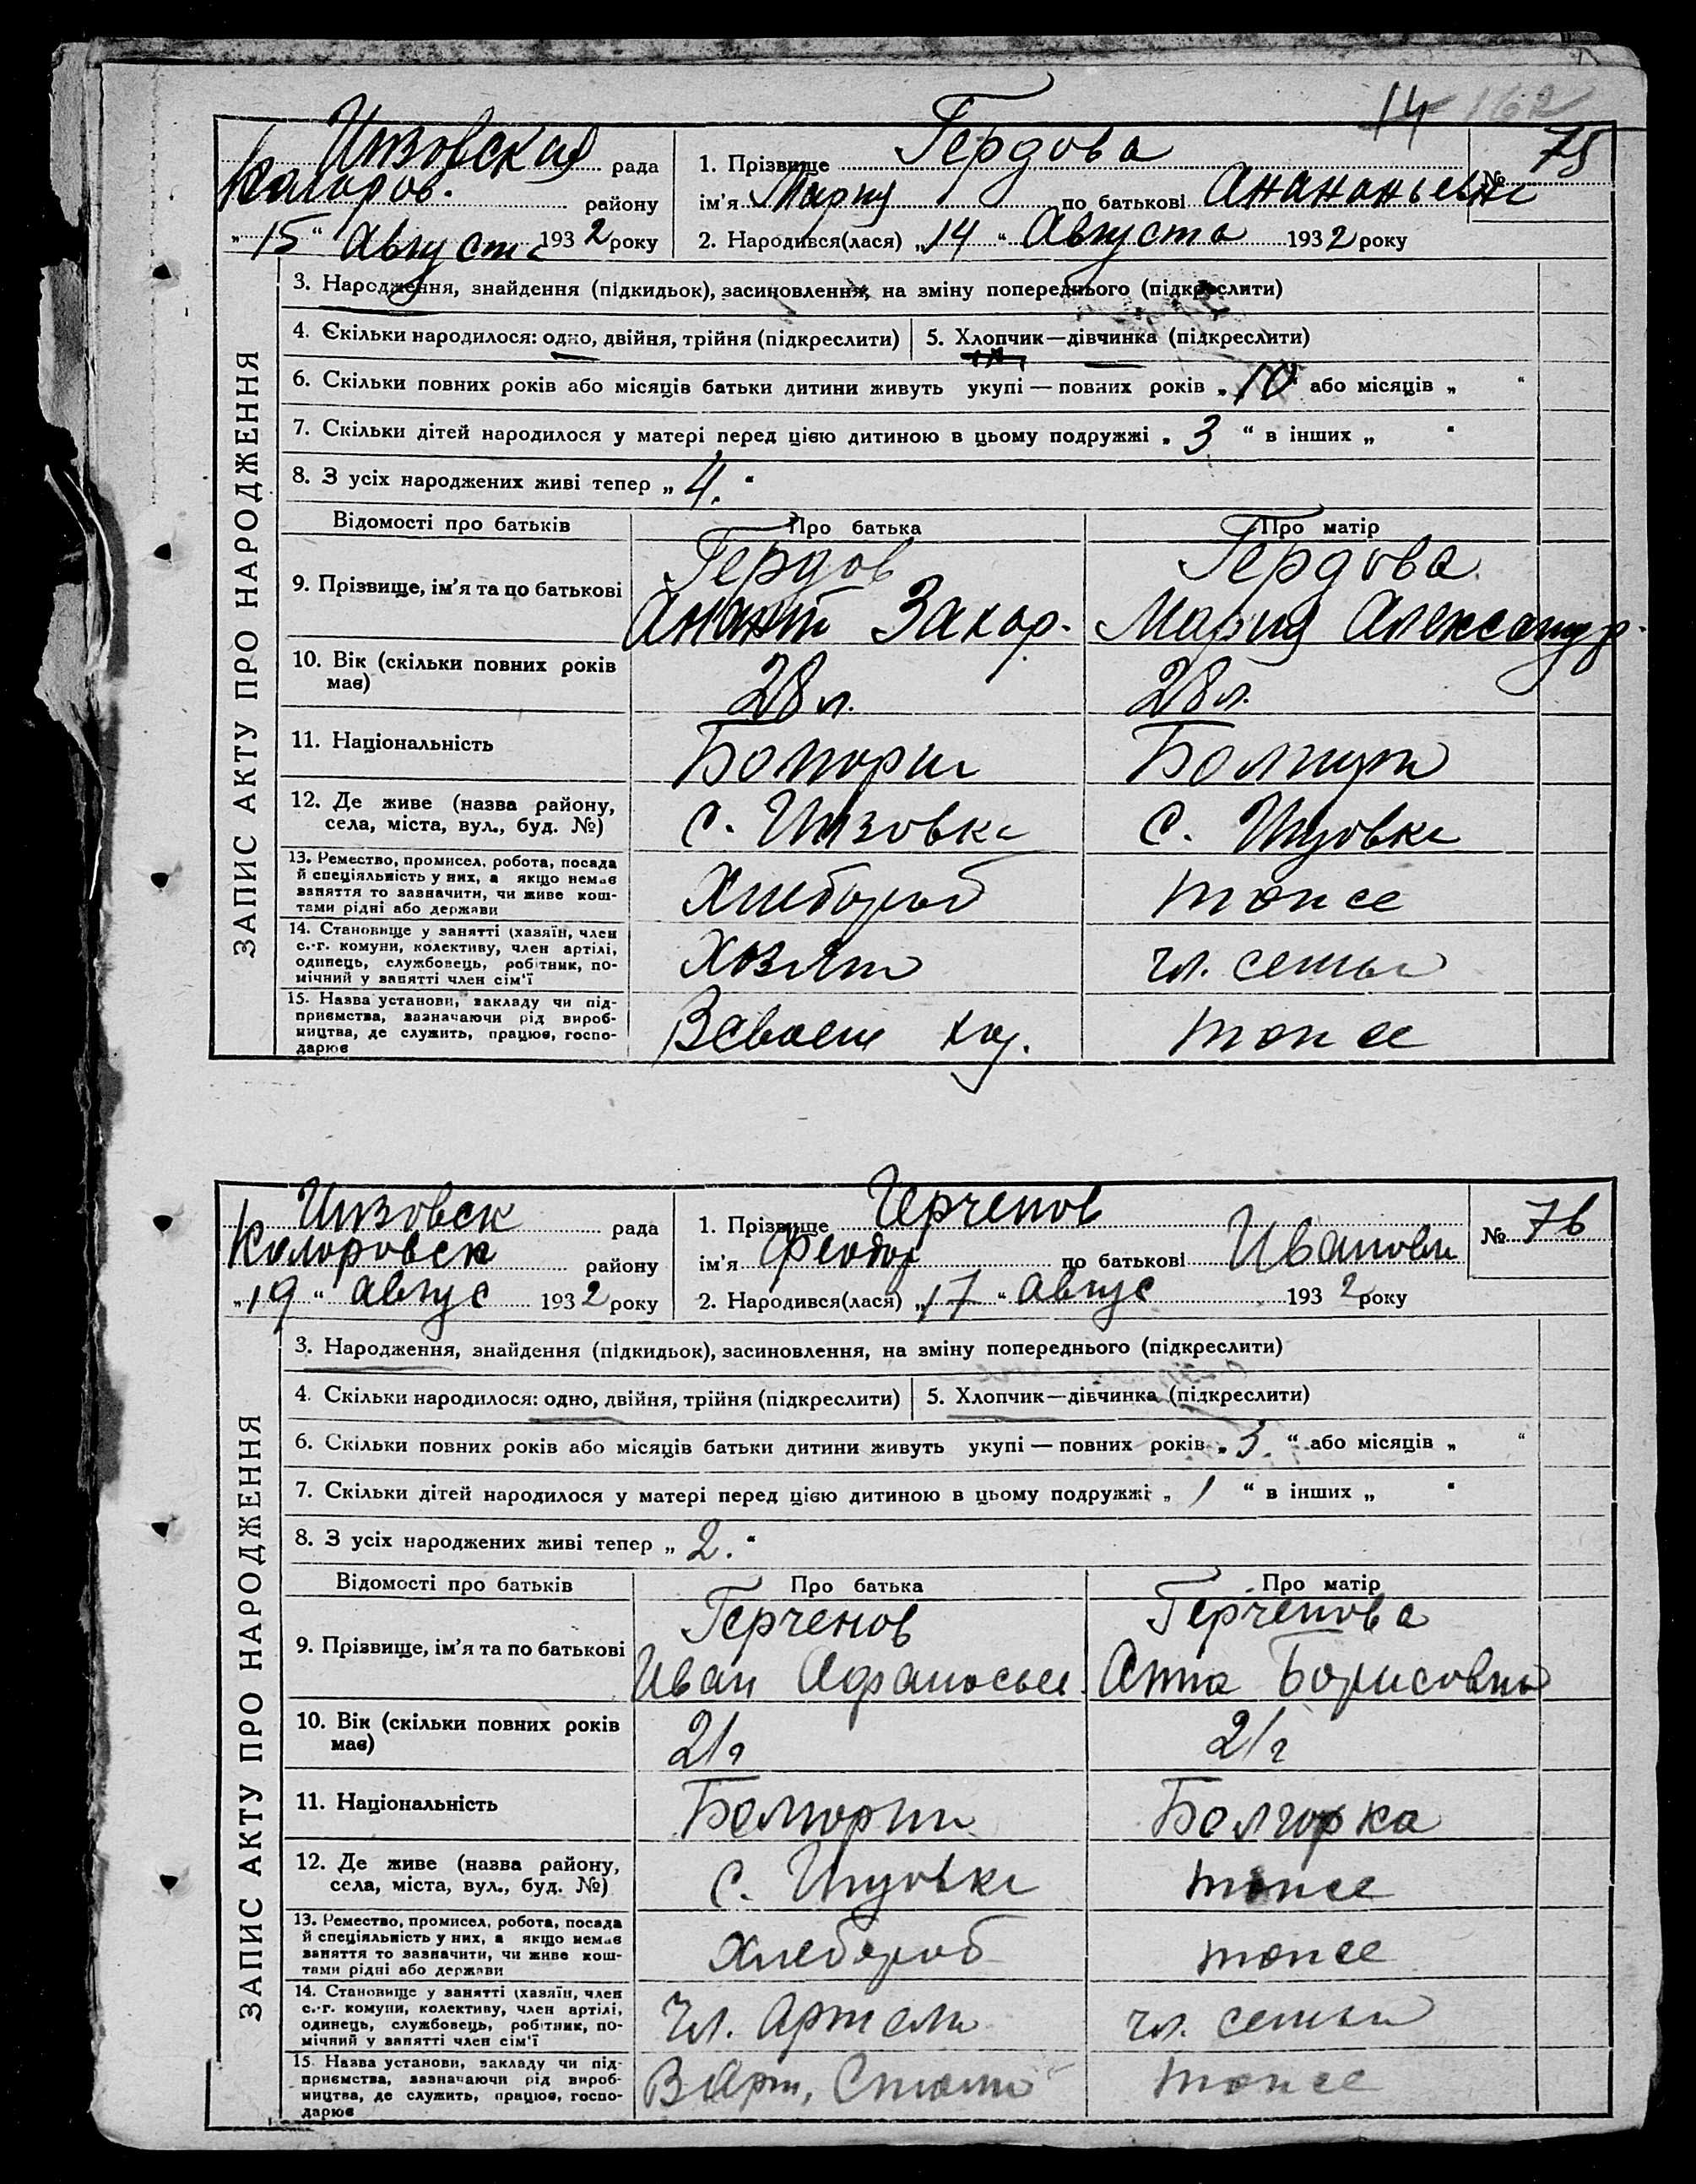 14 162
Инзовская рада
Коларов. району
„15“ Августа 1932 року
1. Прізвище Гердова
ім'я Мария по батькові Анананьевна
№ 75
2. Народився(лася) „14“ Августа 1932 року
ЗАПИС АКТУ ПРО НАРОДЖЕННЯ
3. Народження, знайдення (підкидьок), засиновлення, на зміну попереднього (підкреслити)
4. Єкільки народилося: одно, двійня, трійня (підкреслити) 5. Хлопчик—дівчинка (підкреслити)
6. Скільки повних років або місяців батьки дитини живуть укупі — повних років „10“ або місяців „ “
7. Скільки дітей народилося у матері перед цією дитиною в цьому подружжі „3“ в інших „ “
8. З усіх народжених живі тепер „4.“
Відомості про батьків Про батька Про матір
9. Прізвище, ім'я та по батькові
Гердов Гердова
Захар. Мария Александр.
10. Вік (скільки повних років має) 28 л. 28 л.
11. Національність
12. Де живе (назва району, села, міста, вул., буд. №) с. Инзовка с. Инзовка
13. Ремество, промисел, робота, посада
й спеціяльність у них, а якщо немає
заняття то зазначити, чи живе кош-
тами рідні або держави
Хлебороб тоже
14. Становище у занятті (хазяїн, член
с.-г. комуни, колективу, член артілі,
одинець, службовець, робітник, по-
мічний у занятті член сім'ї
Хозяин чл. семьи
15. Назва установи, закладу чи під-
приємства, зазначаючи рід вироб-
ництва, де служить, працює, госпо-
дарює
В своем хоз. тоже
Инзовск рада
Коларовск району
„19“ авгус 1932 року
1. Прізвище Герченов
ім'я Феодор по батькові Иванови
№ 76
2. Народився(лася) „17“ авгус 1932 року
ЗАПИС АКТУ ПРО НАРОДЖЕННЯ
3. Народження, знайдення (підкидьок), засиновлення, на зміну попереднього (підкреслити)
4. Скільки народилося: одно, двійня, трійня (підкреслити) 5. Хлопчик—дівчинка (підкреслити)
6. Скільки повних років або місяців батьки дитини живуть укупі — повних років „3.“ або місяців „ “
7. Скільки дітей народилося у матері перед цією дитиною в цьому подружжі „1“ в інших „ “
8. З усіх народжених живі тепер „2.“
Відомості про батьків Про батька Про матір
9. Прізвище, ім'я та по батькові
Герченов Герченова
Иван Афанасьев Анна Борисовна
10. Вік (скільки повних років має) 21 г 21 г
11. Національність Болгарин Болгарка
12. Де живе (назва району, села, міста, вул., буд. №) с. Инзовка тоже
13. Ремество, промисел, робота, посада
й спеціяльність у них, а якщо немає
заняття то зазначити, чи живе кош-
тами рідні або держави
Хлебороб тоже
14. Становище у занятті (хазяїн, член
с.-г. комуни, колективу, член артілі,
одинець, службовець, робітник, по-
мічний у занятті член сім'ї
Чл. Артели чл. семьи
15. Назва установи, закладу чи під-
приємства, зазначаючи рід вироб-
ництва, де служить, працює, госпо-
дарює
В Арт. тоже